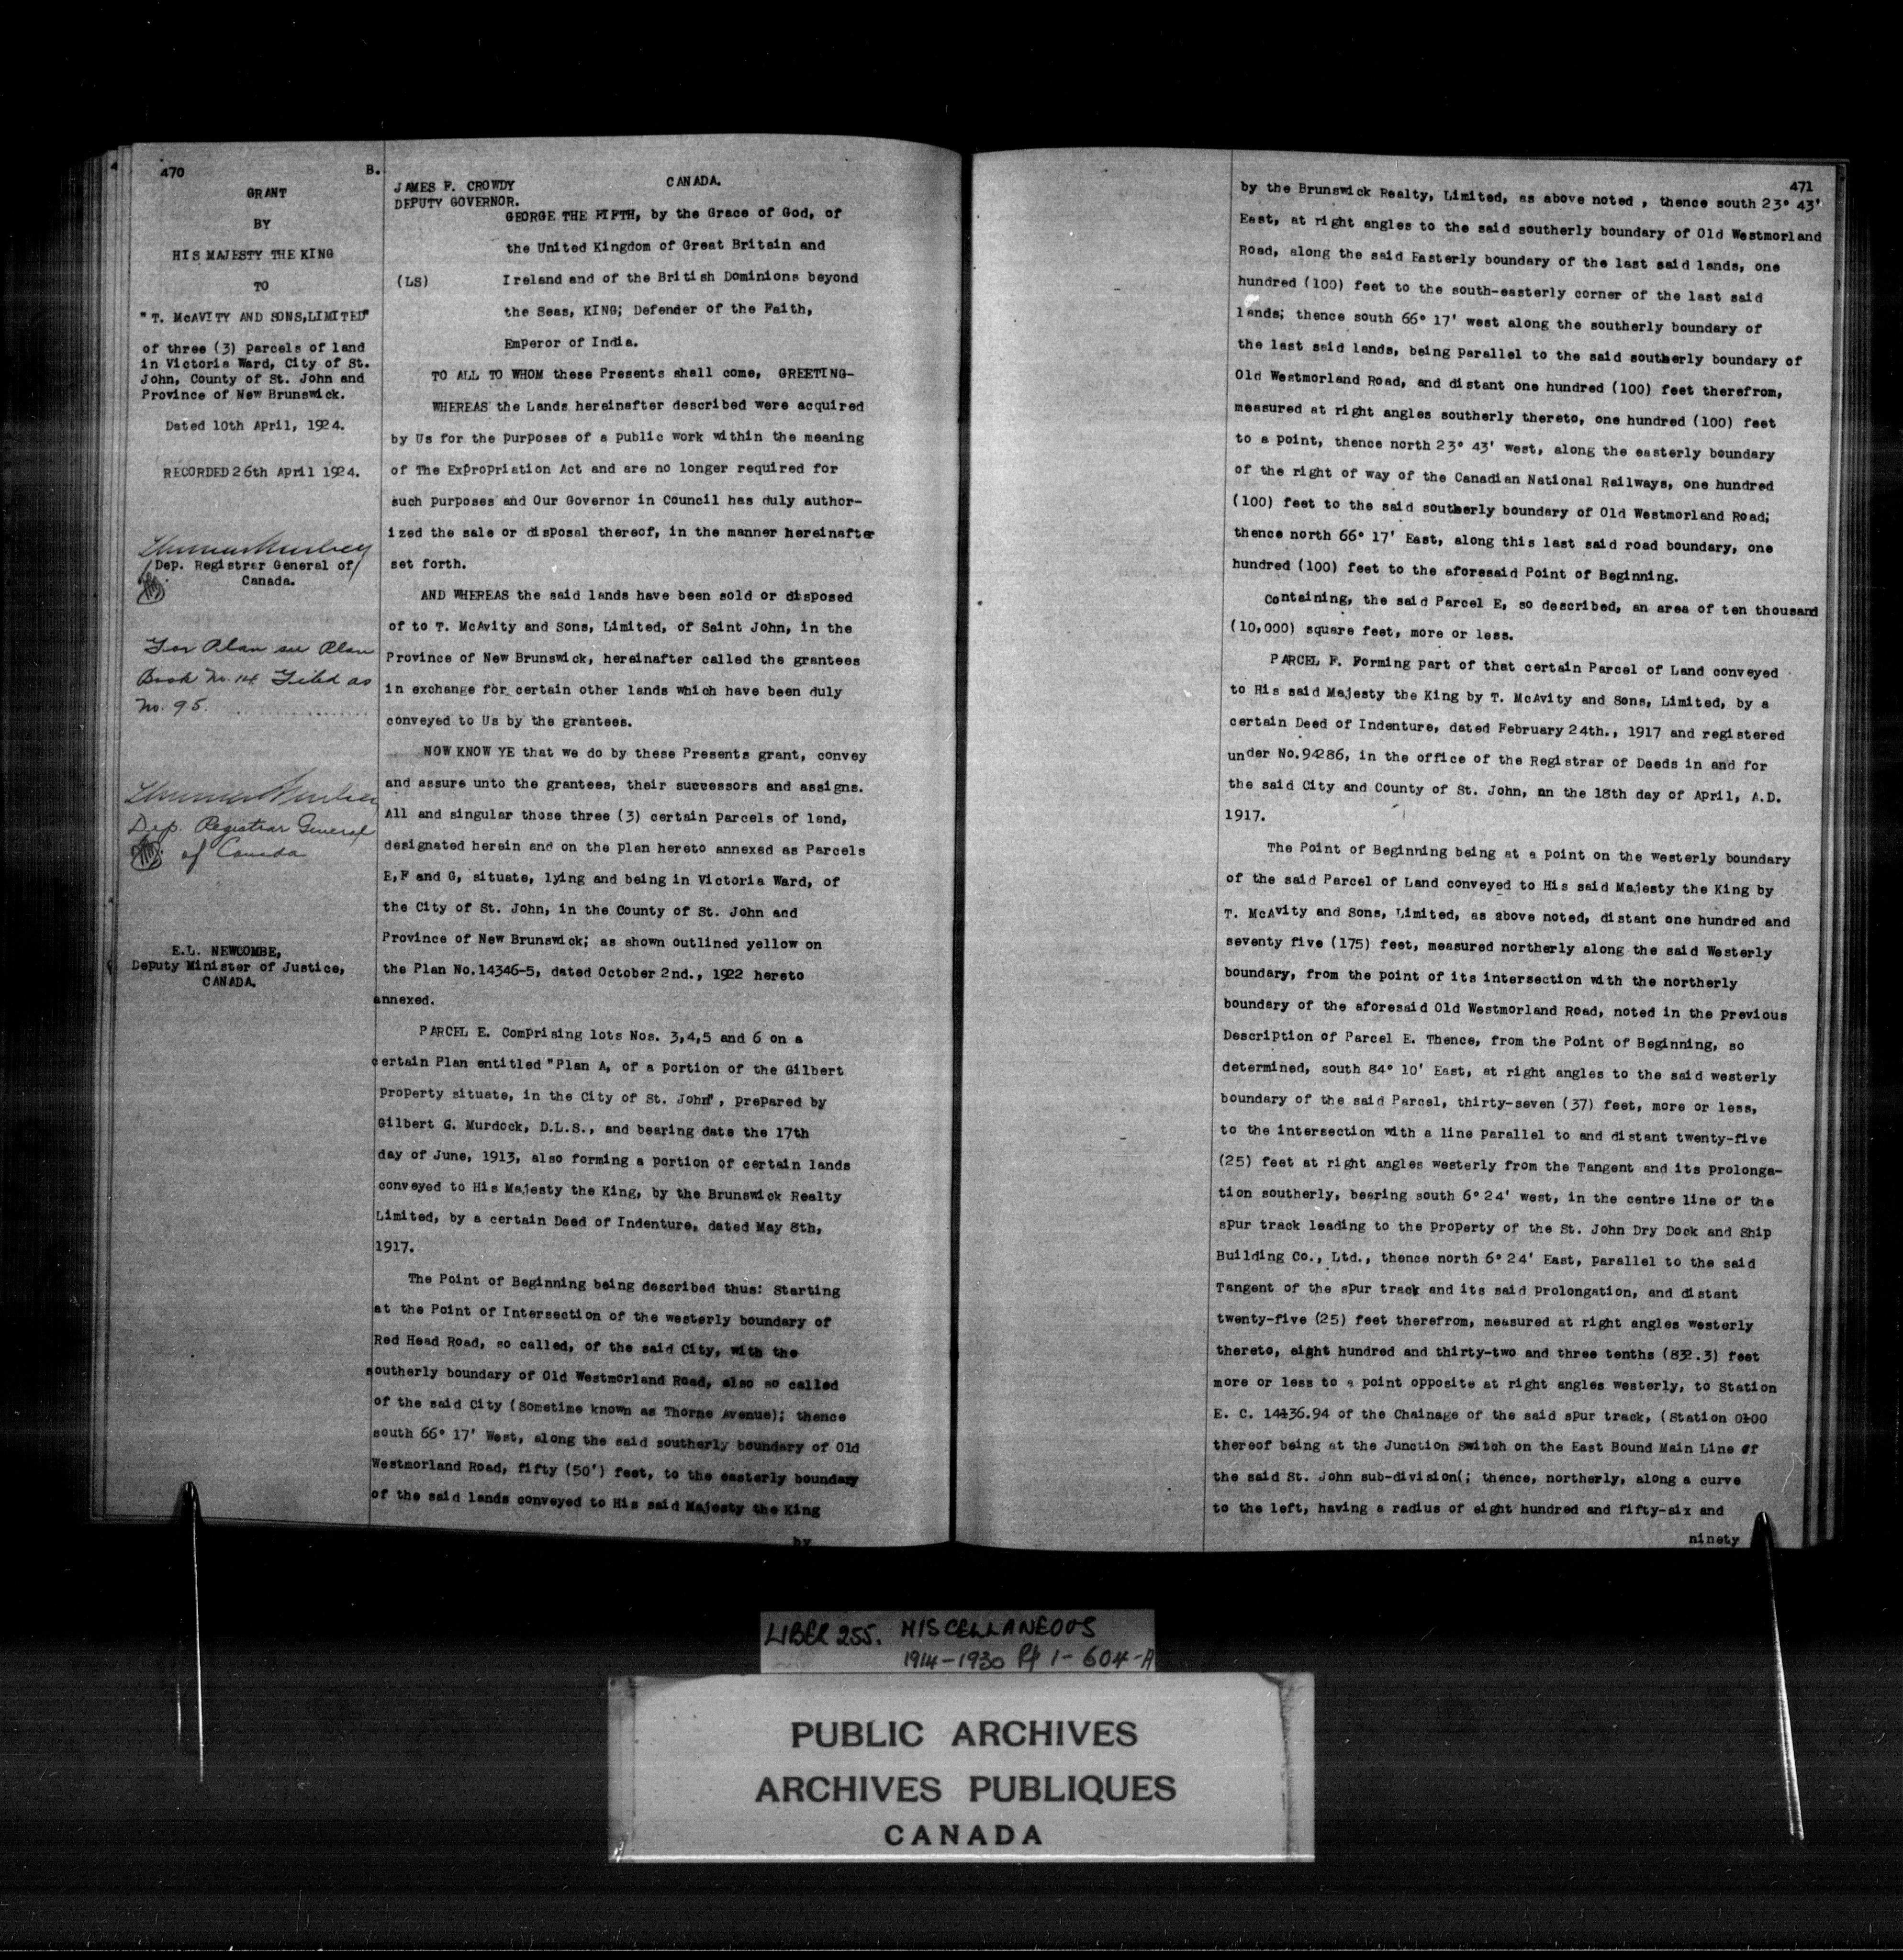 470
B.
GRANT
BY
HIS MAJESTY THE KING
TO
"T. McAVITY AND SONS,LIMITED"
of three (3) parcels of land
in Victoria Ward, City of St.
John, County of St. John and
Province of New Brunswick.
Dated 10th April, 1924.
RECORDED 26th April 1924.
Dep. Registrar General of
Canada.
For Plan see Plan
Book No. 14. Filed as
No. 95.
Dep. Registrar General
of Canada
E.L. NEWCOMBE,
Deputy Minister of Justice,
CANADA.
JAMES F. CROWDY
DEPUTY GOVERNOR.
CANADA.
GEORGE THE FIFTH, by the Grace of God, of
the United Kingdom of Great Britain and
(LS) Ireland and of the British Dominions beyond
the Seas, KING; Defender of the Faith,
Emperor of India.
TO ALL TO WHOM these Presents shall come, GREETING-
WHEREAS the Lands hereinafter described were acquired
by Us for the purposes of a public work within the meaning
of The Expropriation Act and are no longer required for
such purposes and Our Governor in Council has duly author-
ized the sale or disposal thereof, in the manner hereinafter
set forth.
AND WHEREAS the said lands have been sold or disposed
of to T. McAvity and Sons, Limited, of Saint John, in the
Province of New Brunswick, hereinafter called the grantees
in exchange for certain other lands which have been duly
conveyed to Us by the grantees.
NOW KNOW YE that we do by these Presents grant, convey
and assure unto the grantees, their successors and assigns.
All and singular those three (3) certain parcels of land,
designated herein and on the plan hereto annexed as Parcels
E,F and G, situate, lying and being in Victoria Ward, of
the City of St. John, in the County of St. John and
Province of New Brunswick; as shown outlined yellow on
the Plan No.14346-5, dated October 2nd., 1922 hereto
annexed.
PARCEL E. Comprising lots Nos. 3,4,5 and 6 on a
certain Plan entitled "Plan A, of a portion of the Gilbert
Property situate, in the City of St. John", prepared by
Gilbert G. Murdock, D.L.S., and bearing date the 17th
day of June, 1913, also forming a portion of certain lands
conveyed to His Majesty the King, by the Brunswick Realty
Limited, by a certain Deed of Indenture, dated May 8th,
1917.
The Point of Beginning being described thus: Starting
at the Point of Intersection of the westerly boundary of
Red Head Road, so called, of the said City, with the
southerly boundary of Old Westmorland Road, also so called
of the said City (Sometime known as Thorne Avenue); thence
south 66° 17' West, along the said southerly boundary of Old
Westmorland Road, fifty (50') feet, to the easterly boundary
of the said lands conveyed to His said Majesty the King
by
471
by the Brunswick Realty, Limited, as above noted , thence south 23° 43'
East, at right angles to the said southerly boundary of Old Westmorland
Road, along the said Easterly boundary of the last said lands, one
hundred (100) feet to the south-easterly corner of the last said
lands; thence south 66° 17' west along the southerly boundary of
the last said lands, being parallel to the said southerly boundary of
Old Westmorland Road, and distant one hundred (100) feet therefrom,
measured at right angles southerly thereto, one hundred (100) feet
to a point, thence north 23° 43' west, along the easterly boundary
of the right of way of the Canadian National Railways, one hundred
(100) feet to the said southerly boundary of Old Westmorland Road;
thence north 66° 17' East, along this last said road boundary, one
hundred (100) feet to the aforesaid Point of Beginning.
Containing, the said Parcel E, so described, an area of ten thousand
(10,000) square feet, more or less.
PARCEL F. Forming part of that certain Parcel of Land conveyed
to His said Majesty the King by T. McAvity and Sons, Limited, by a
certain Deed of Indenture, dated February 24th., 1917 and registered
under No.94286, in the office of the Registrar of Deeds in and for
the said City and County of St. John, on the 18th day of April, A.D.
1917.
The Point of Beginning being at a point on the westerly boundary
of the said Parcel of Land conveyed to His said Majesty the King by
T. McAvity and Sons, Limited, as above noted, distant one hundred and
seventy five (175) feet, measured northerly along the said Westerly
boundary, from the point of its intersection with the northerly
boundary of the aforesaid Old Westmorland Road, noted in the previous
Description of Parcel E. Thence, from the Point of Beginning, so
determined, south 84° 10' East, at right angles to the said westerly
boundary of the said Parcel, thirty-seven (37) feet, more or less,
to the intersection with a line parallel to and distant twenty-five
(25) feet at right angles westerly from the Tangent and its prolonga-
tion southerly, bearing south 6° 24' west, in the centre line of the
spur track leading to the property of the St. John Dry Dock and Ship
Building Co., Ltd., thence north 6° 24' East, parallel to the said
Tangent of the spur track and its said prolongation, and distant
twenty-five (25) feet therefrom, measured at right angles westerly
thereto, eight hundred and thirty-two and three tenths (832.3) feet
more or less to a point opposite at right angles westerly, to Station
E. C. 14+36.94 of the Chainage of the said spur track, (Station 0+00
thereof being at the Junction Switch on the East Bound Main Line of
the said St. John sub-division(; thence, northerly, along a curve
to the left, having a radius of eight hundred and fifty-six and
ninety
LIBER 255. MISCELLANEOUS
1914-1930 Pt 1- 604-A
PUBLIC ARCHIVES
ARCHIVES PUBLIQUES
CANADA